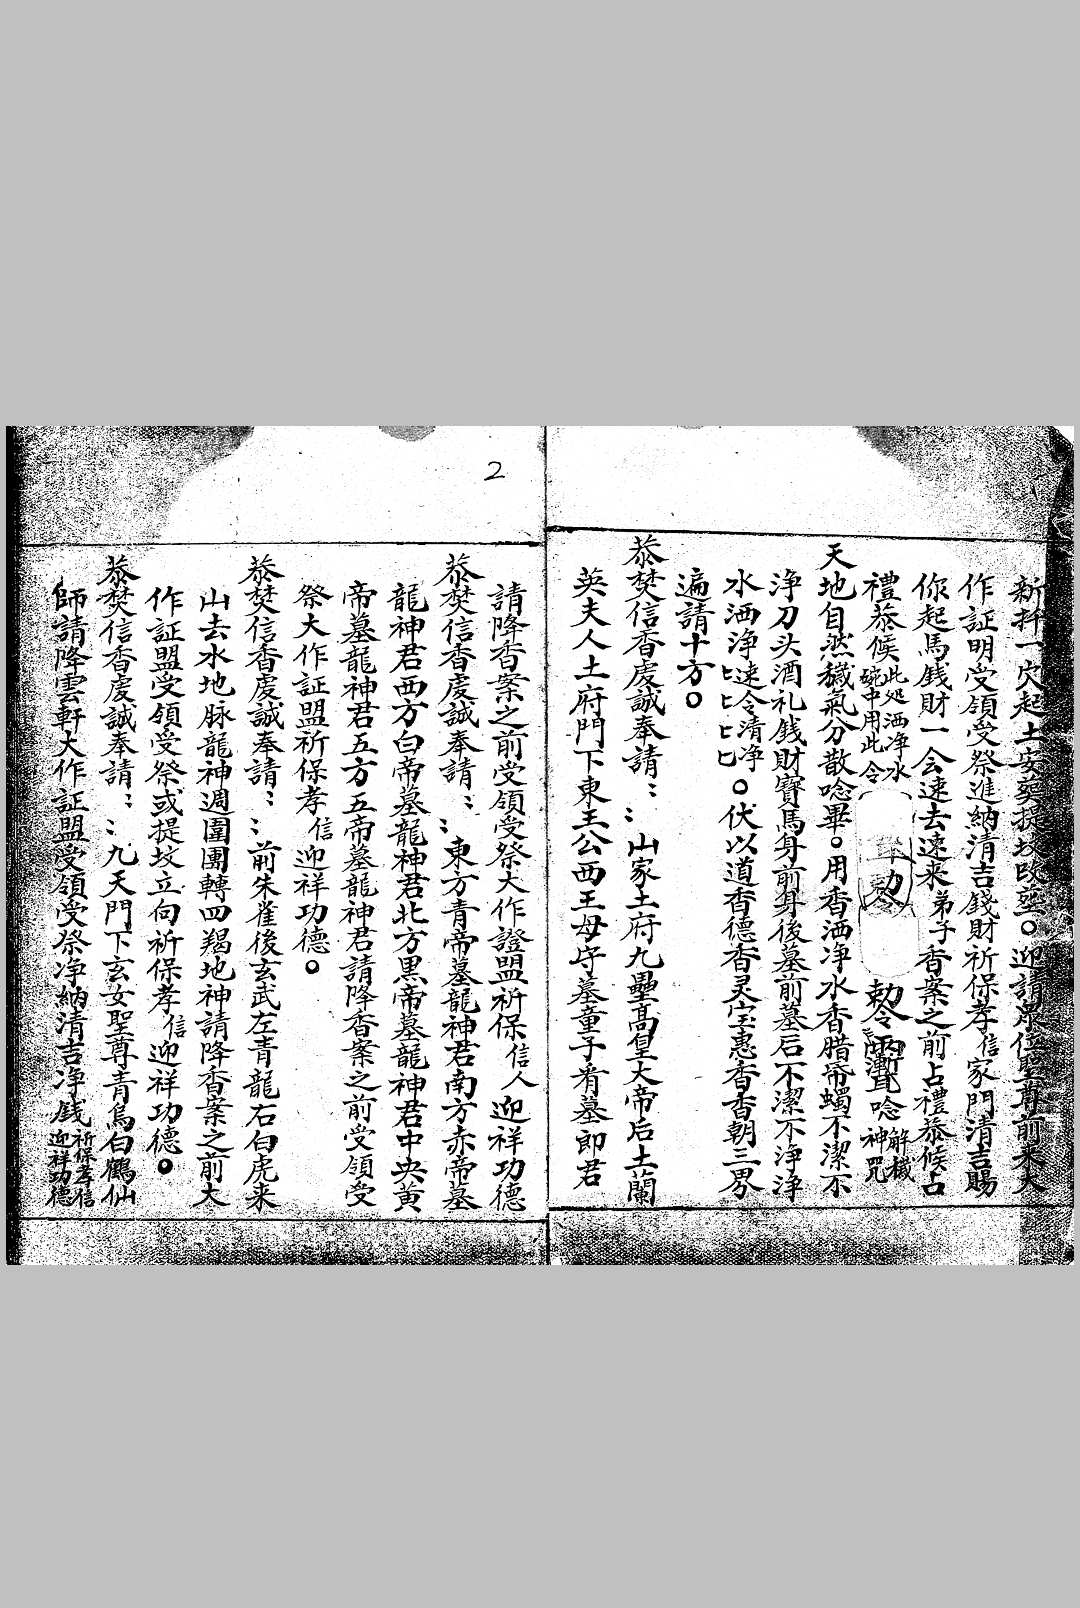 新扦一穴起土安葬提坟改𦵏。迎請眾位聖尊前來大
作証明受領受祭進納清吉錢財祈保孝信家門清吉賜
你起馬錢財一会速去速来弟子香案之前占禮恭候占
禮恭候此処洒净水碗中用此令 勅令 勅令 唸解穢神咒
天地自然穢氣分散唸畢。用香洒净水香腊帋蠋不潔不
淨刀头酒礼錢財寶馬身前身後墓前墓后不潔不淨淨
水洒淨速令清净匕匕匕匕。伏以道香德香灵宝惠香香朝三界
遍請十方。
恭焚信香虔誠奉請:: 山家土府九壘高皇大帝后土蘭
英夫人土府門下東王公西王母守墓童子看墓郎君
2
請降香案之前受領受祭大作證盟祈保信人迎祥功德
恭焚信香虔誠奉請:: 東方青帝墓龍神君南方赤帝墓
龍神君西方白帝墓龍神君北方黑帝墓龍神君中央黃
帝墓龍神君五方五帝墓龍神君請降香案之前受領受
祭大作証盟祈保孝信迎祥功德。
恭焚信香虔誠奉請:: 前朱雀後玄武左青龍右白虎来
山去水地脉龍神週圍團轉四羯地神請降香案之前大
作証盟受領受祭或提坟立向祈保孝信迎祥功德。
恭焚信香虔誠奉請:: 九天門下玄女聖尊青烏白鶴仙
師請降雲軒大作証盟受領受祭净納清吉净錢祈保孝信迎祥功德